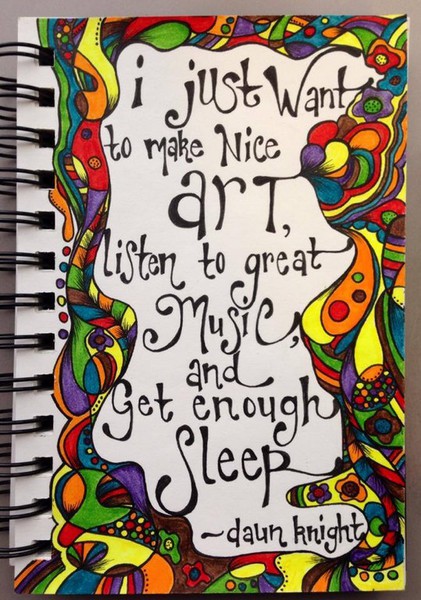 i just Want
to make Nice
art,
listen to great
Music,
and
Get enough
Sleep
~daun knight